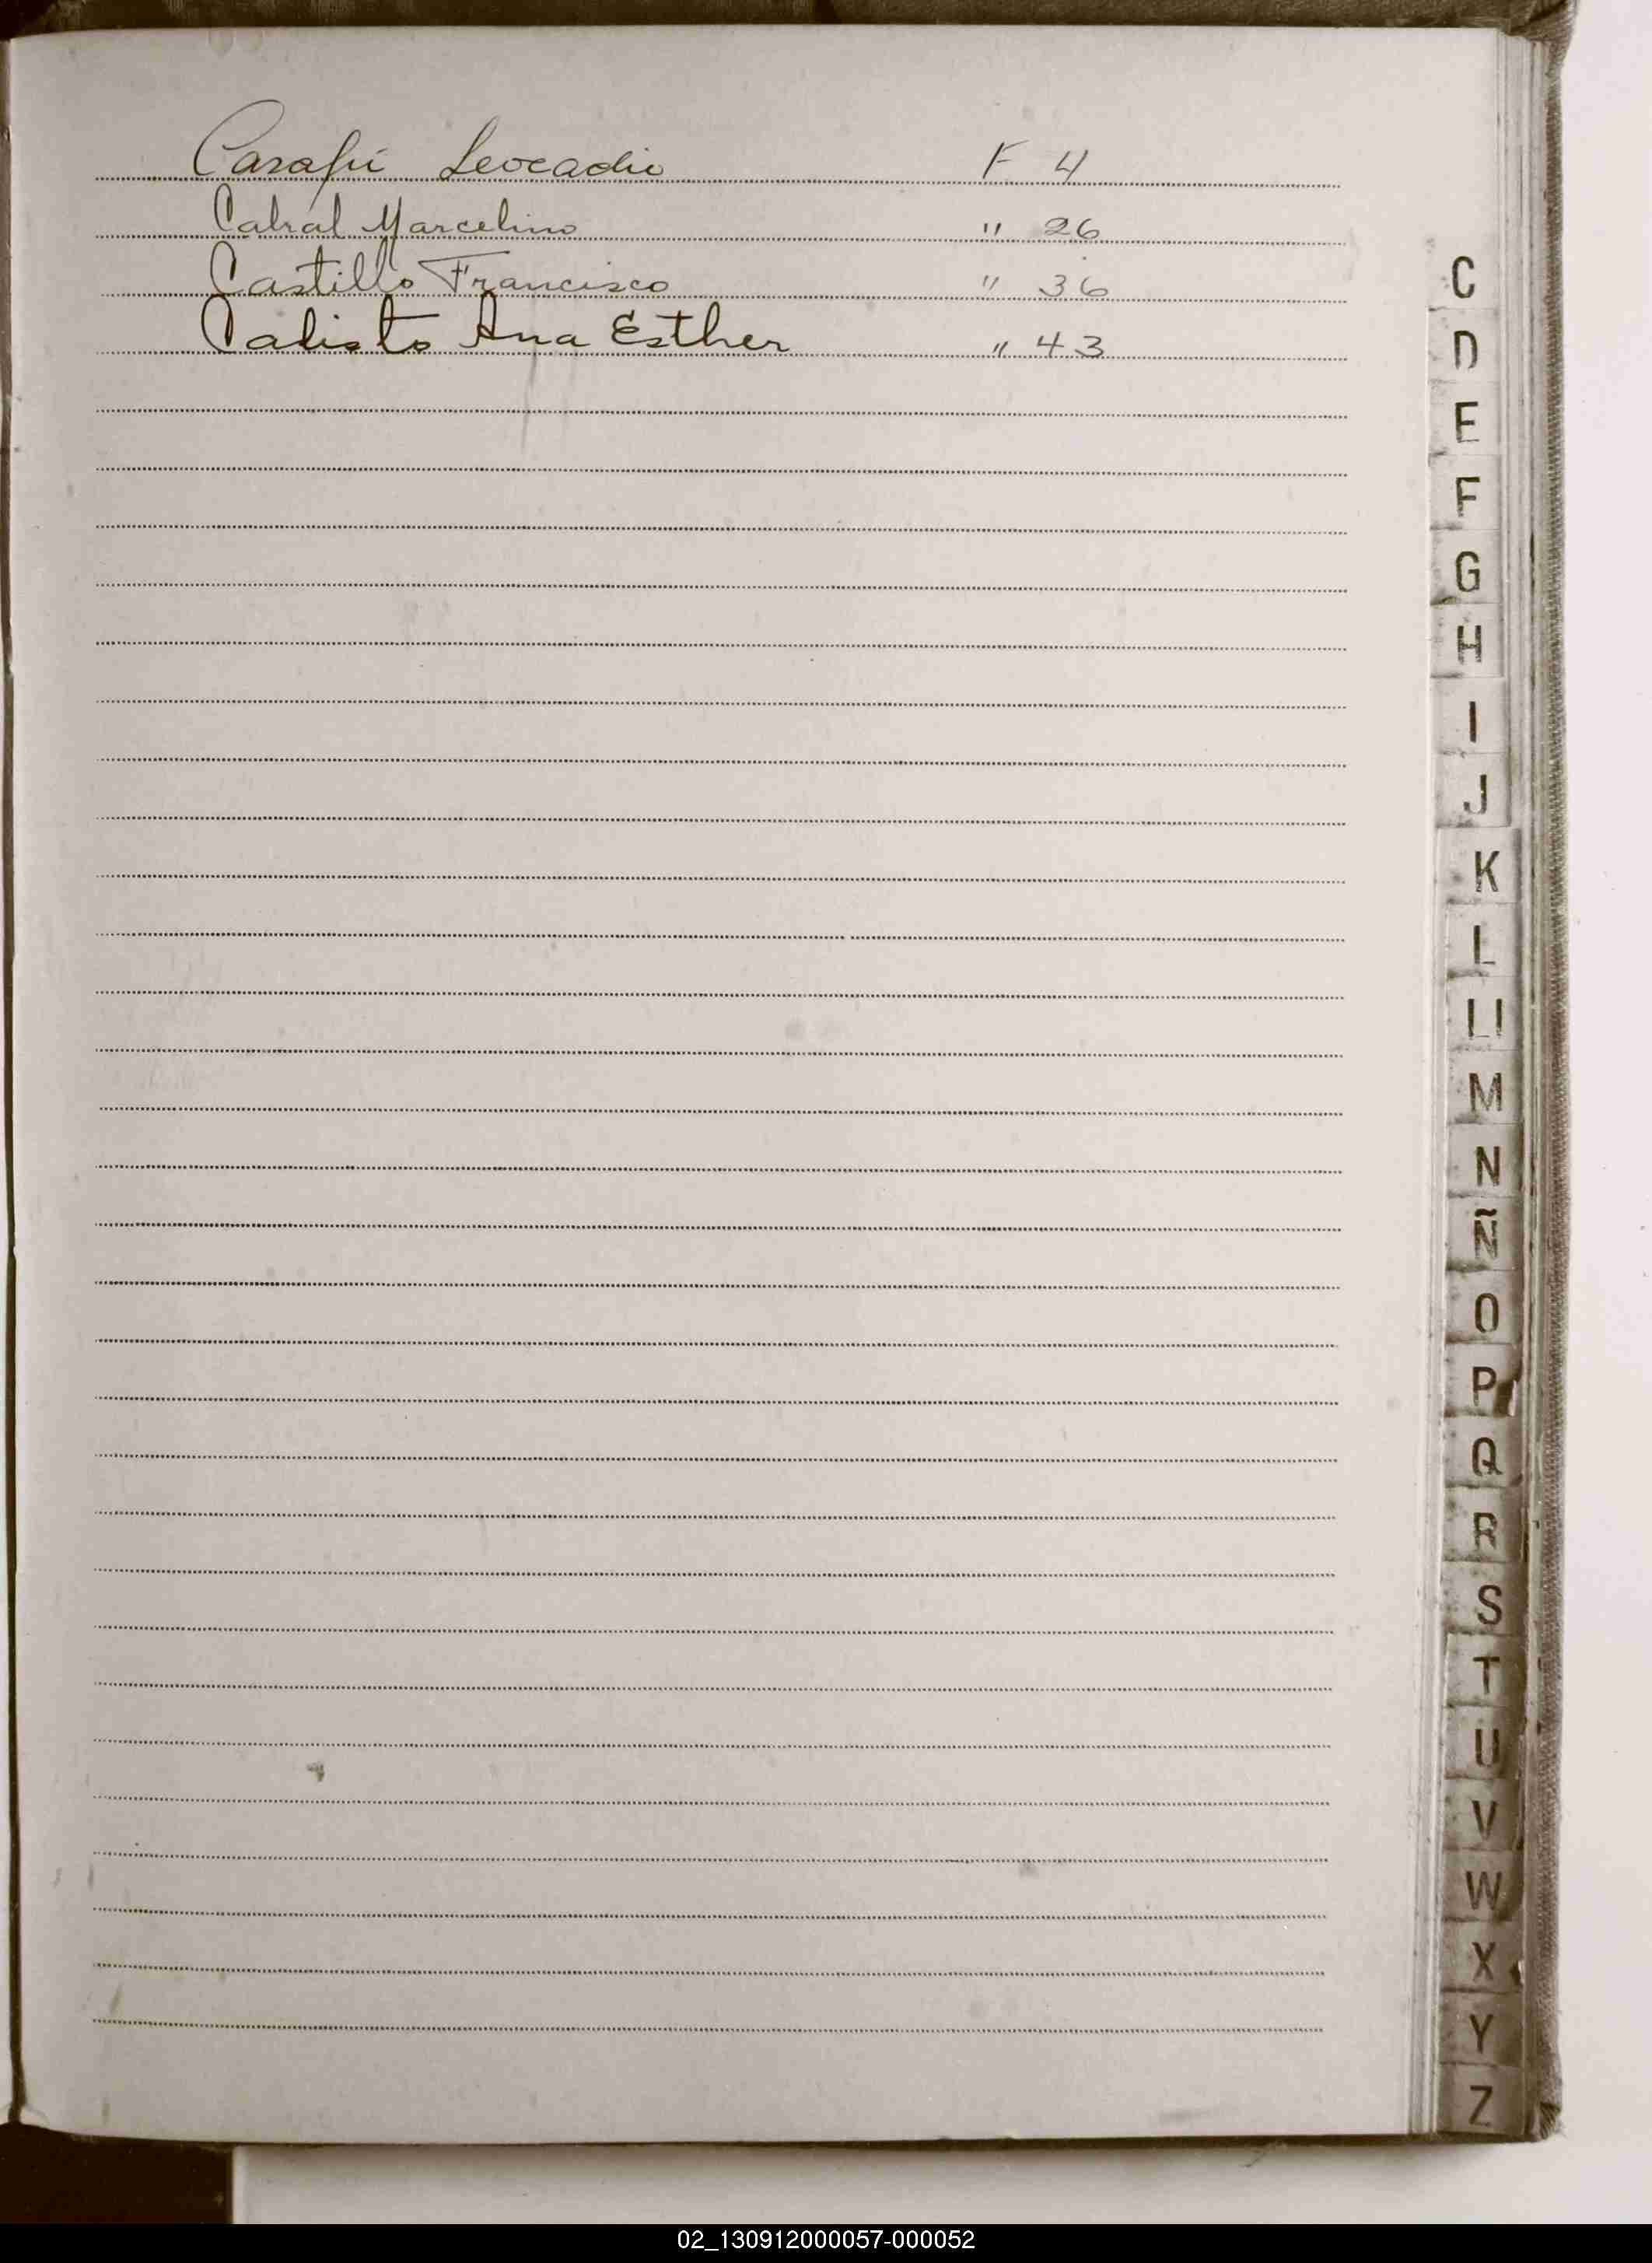 Carafí Leocadio F 4
Cabral Marcelino " 26
Castillo Francisco " 36
Calisto Ana Esther " 43
C
D
E
F
G
H
I
J
K
L
Ll
M
N
Ñ
O
P
Q
R
S
T
U
V
W
X
Y
Z
02_130912000057-000052